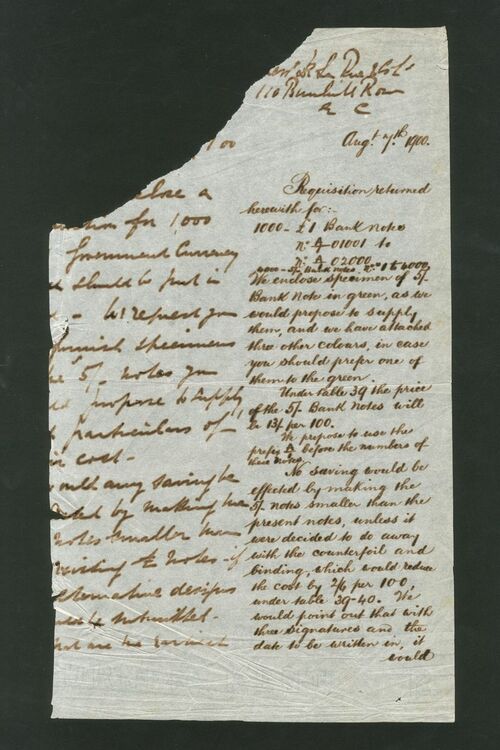 110 Bunhill Row
E C
Augt 7th 1900.
100
close a
for 1,000
Government Currency
should be put in
We request you
furnish specimens
5/- notes you
propose to supply
particulars of
cost -
any saving be
by making the
notes smaller than
existing £ notes if
alternative designs
submitted -
are the earliest
Requisition returned
herewith for:-
1000 - £1 Bank notes
No A/4 01001 to
No A/4 02000
4000 - 5/- Bank notes. Nos 1 to 4000
We enclose specimen of 5/-
Bank Note in green, as we
would propose to supply
them, and we have attached
three other colours, in case
you should prefer one of
them to the green.
Under table 39 the price
of the 5/- Bank Notes will
be 13/- per 100.
We propose to use the
prefix before the numbers of
these notes.
No saving would be
effected by making the
5/- notes smaller than the
present notes, unless it
were decided to do away
with the counterfoil and
binding, which would reduce
the cost by 2/6 per 100,
under table 39-40. We
would point out that with
three signatures and the
date to be written in, it
would